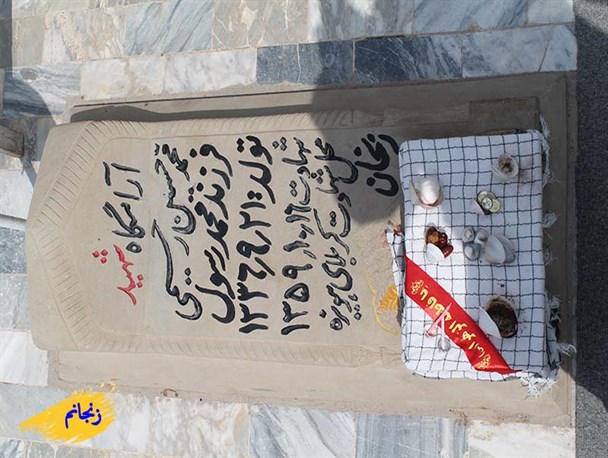 آرامگاه شهید
محمد حسین
فرزند محمد رسول
تولد: ۱۳۳۶٫۹٫۲۱
شهادت ۱۳۵۹٫۱۰٫۱۶
محل شهادت کربلای هویزه
زنجان
زنجانم